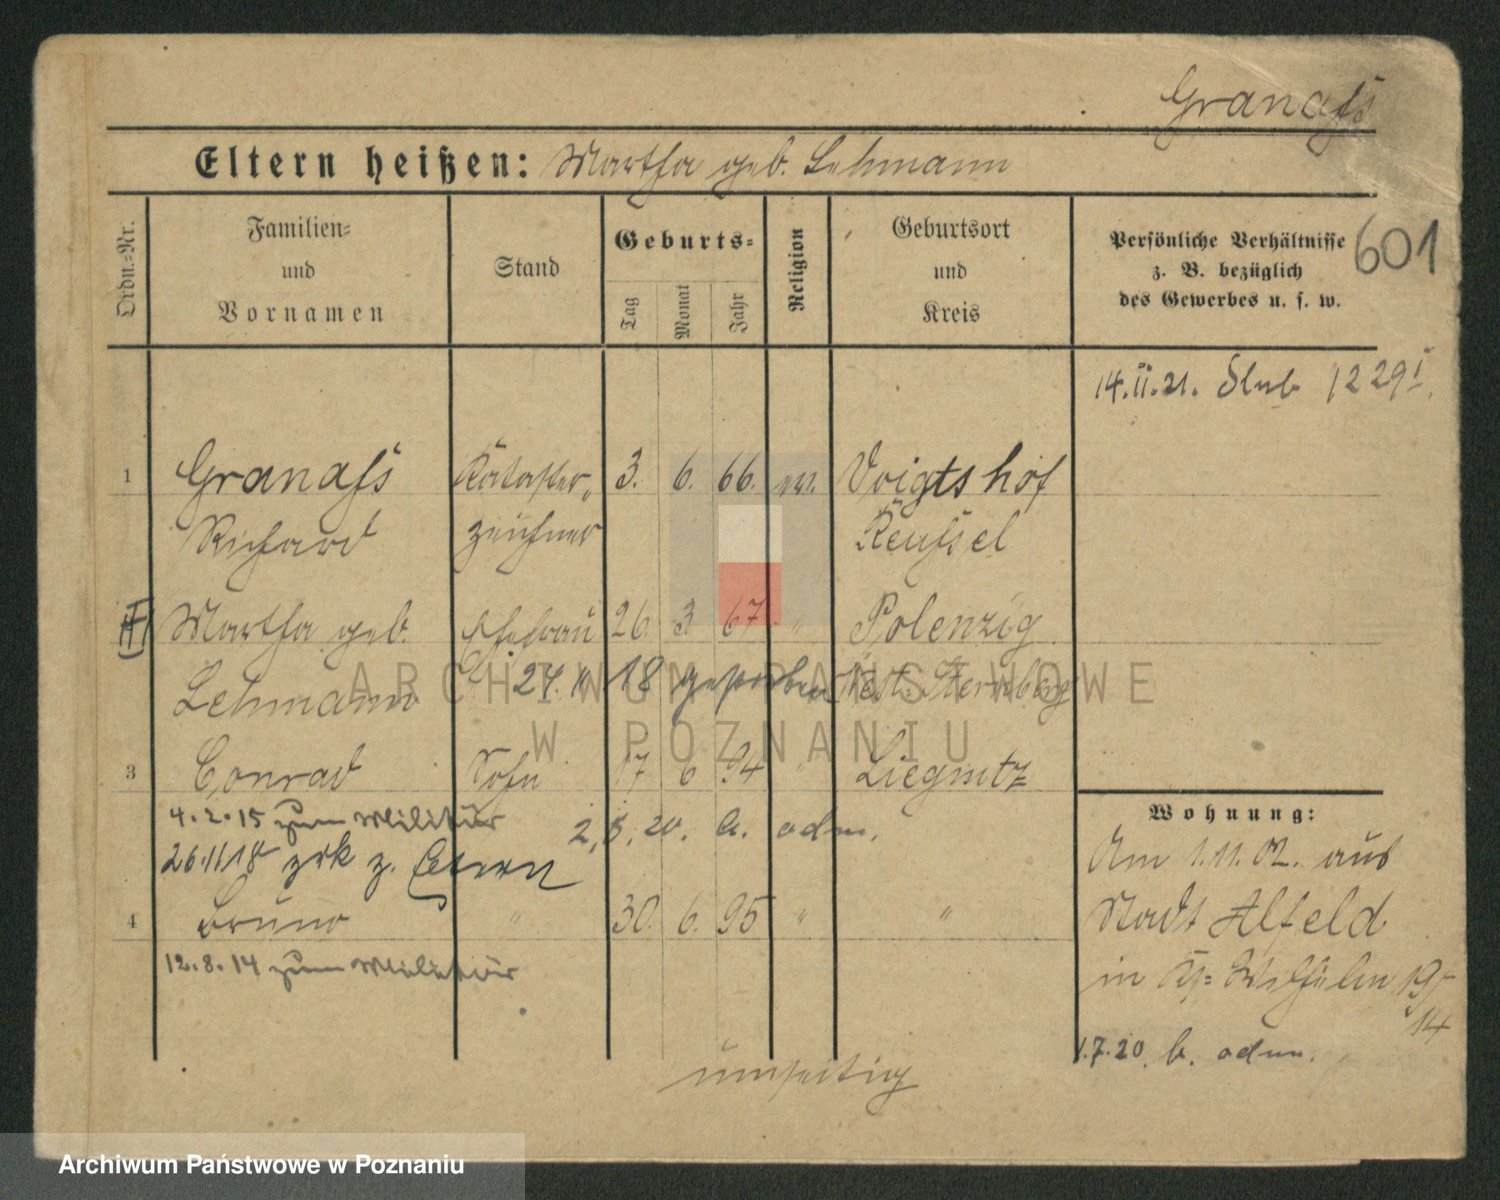 Granaß
Eltern heißen: Martha geb. Lehmann
Ordn.-Nr.
Familien-
und
Vornamen
Stand
Geburts-
Tag
Monat
Jahr
Religion
Geburtsort
und
Kreis
Persönliche Verhältnisse
z. B. bezüglich
des Gewerbes u. s. w.
601
14.II.21. Slub 1229 I.
1 Granaß Kataster- 3. 6. 66. ev. Voigtshof
Richard zeichner
Martha geb. Ehefrau 26. 3. 67. " Polenzig
Lehmann 24. 18 gestorben Sternberg
3 Conrad Sohn 17 6 94 " Liegnitz
4.2.15 zum Militär 2.5.20. b. odm.
26.11.18 zrk z. Eltern
4 Bruno " 30. 6. 95 " "
12.8.14 zum Militär
Wohnung:
Am 1.11.02. aus
Stadt Alfeld
in 19/14
1.7.20 b. odm.
umseitig
ARCHIWUM PAŃSTWOWE
W POZNANIU
Archiwum Państwowe w Poznaniu